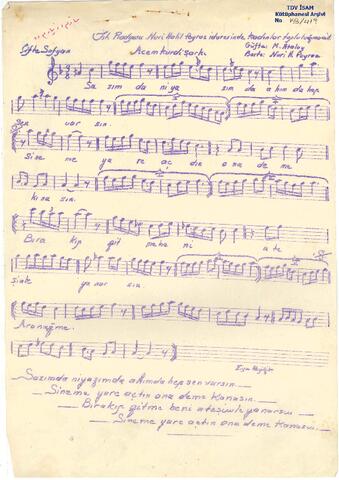 TDV İSAM
Kütüphanesi Arşivi
No
Nuri Halil Poyraz idaresinde
Çifte Sofyan
Acemkurdi şarkı
Güfte: M. Atalay
Beste: Nuri H. Poyraz
Sa zım da niya zım da a lım da hep
sen var sın
Sine me ya re aç dın o na de me
ka na sın
Bıra kıp git me be ni a te
şinle ya nar sın
Aranağme.
Sazımda niyazımda alımda hep sen varsın
Sineme yare açtın ona deme kanasın.
Bırakıp gitme beni ateşinle yanarsın
Sineme yare açtın ona deme kanasın.